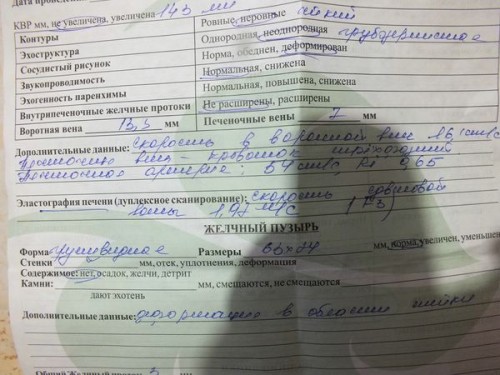 Дата провед
КВР мм, не увеличена, увеличена 143 мм
Контуры Ровные, неровные
Эхоструктура Однородная, неоднородная
Сосудистый рисунок Норма, обеднен, деформирован
Звукопроводимость Нормальная, снижена
Эхогенность паренхимы Нормальная, повышена, снижена
Внутрипеченочные желчные протоки Не расширены, расширены
Воротная вена 13,5 мм Печеночные вены 7 мм
Дополнительные данные: скорость в воротной вене 16 см/с
вены - кровоток трехфазный
артерия: 54 см/с, Ri 0,65
Эластография печени (дуплексное сканирование): скорость сдвиговой
волны 1,97 м/с (F3)
ЖЕЛЧНЫЙ ПУЗЫРЬ
Форма грушевидная Размеры 66×24 мм, норма, увеличен, уменьшен
Стенки мм, отек, уплотнения, деформация
Содержимое: нет, осадок, желчи, детрит
Камни: мм, смещаются, не смещаются
дают эхотень
Дополнительные данные: деформация в области шейки
Общий Желчный проток 5 мм